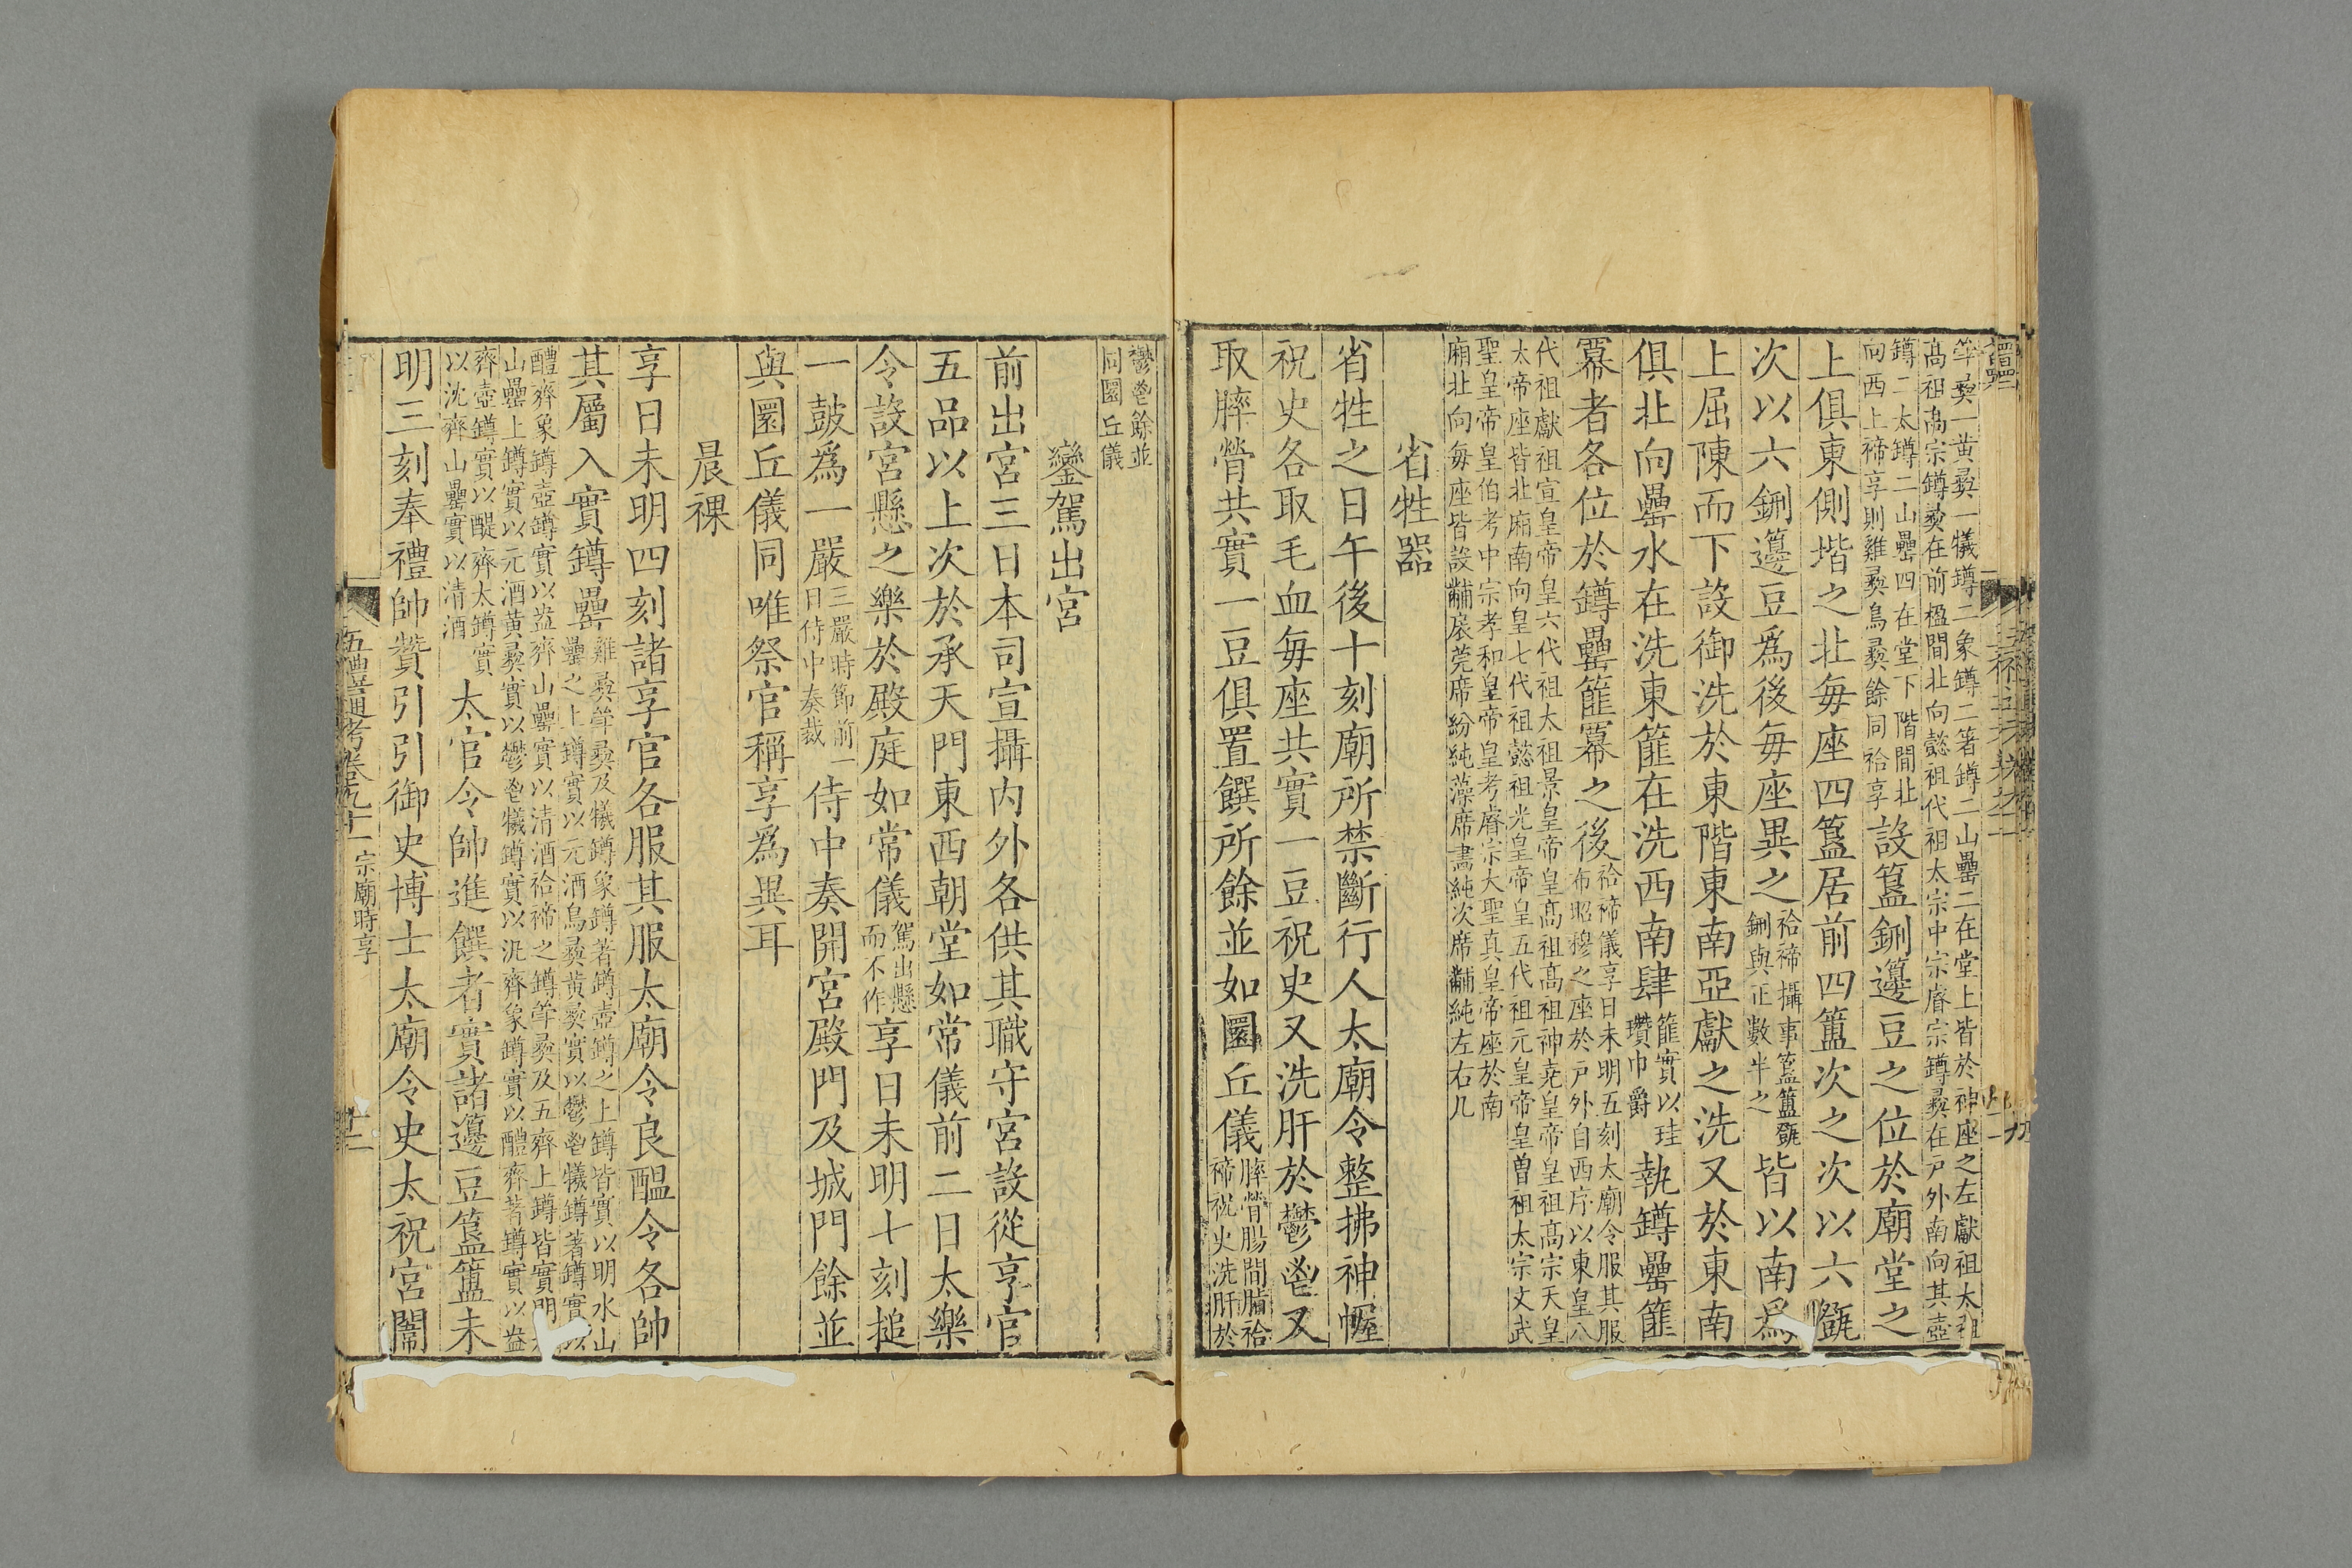 斝彝一黃彝一犧罇二象罇二箸罇二山罍二在堂上皆於神座之左獻祖太祖
高祖高宗罇彝在前楹間北向懿祖代祖太宗中宗睿宗罇彝在戸外南向其壺
罇二太罇二山罍四在堂下階間北
向西上禘享則雞彝鳥彝餘同祫享
設簋鉶籩豆之位於廟堂之
上俱東側堦之北每座四簋居前四簠次之次以六㽅
次以六鉶籩豆爲後每座異之
祫禘攝事簋簠㽅
鉶與正數半之
皆以南爲
上屈陳而下設御洗於東階東南亞獻之洗又於東南
俱北向罍水在洗東篚在洗西南肆
篚實以珪
瓚巾爵
執罇罍篚
冪者各位於罇罍篚冪之後
祫禘儀享日未明五刻太廟令服其服
布昭穆之座於戸外自西序以東皇八
代祖獻祖宣皇帝皇六代祖太祖景皇帝皇高祖高祖神尭皇帝皇祖高宗天皇
太帝座皆北廂南向皇七代祖懿祖光皇帝皇五代祖元皇帝皇曽祖太宗文武
聖皇帝皇伯考中宗孝和皇帝皇考睿宗大聖真皇帝座於南
廂北向每座皆設黼扆莞席紛純藻席畫純次席黼純左右几
省牲器
省牲之日午後十刻廟所禁斷行人太廟令整拂神幄
祝史各取毛血每座共實一豆祝史又洗肝於鬱鬯又
取膟膋共實一豆俱置饌所餘並如圜丘儀
膟膋腸間脂祫
禘祝史洗肝於
鬱鬯餘並
同圜丘儀
鑾駕出宮
前出宮三日本司宣攝内外各供其職守宮設從享官
五品以上次於承天門東西朝堂如常儀前二日太樂
令設宮懸之樂於殿庭如常儀
駕出懸
而不作
享日未明七刻搥
一鼓爲一嚴
三嚴時節前一
日侍中奏裁
侍中奏開宮殿門及城門餘並
與圜丘儀同唯祭官稱享爲異耳
晨祼
享日未明四刻諸享官各服其服太廟令良醖令各帥
其屬入實罇罍
雞彝斝彝及犧罇象罇著罇壺罇之上罇皆實以明水山
罍之上罇實以元酒鳥彝黃彝實以鬱鬯犧罇著罇實以
醴齊象罇壺罇實以盎齊山罍實以清酒祫禘之罇斝彝及五齊上罇皆實明
山罍上罇實以元酒黃彝實以鬱鬯犧罇實以汎齊象罇實以醴齊著罇實以盎
齊壺罇實以醍齊太罇實
以沈齊山罍實以清酒
太官令帥進饌者實諸籩豆簋簠未
明三刻奉禮帥贊引引御史博士太廟令史太祝宮闈
五禮通考卷九十一 宗廟時享
十二